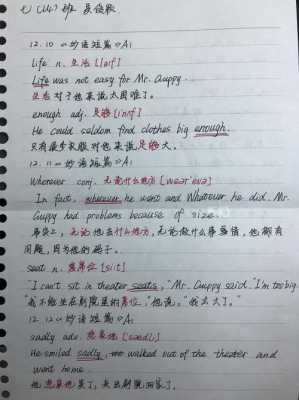 七(14)班
12.10 《妙语短篇》A1
Life n. 生活 [laɪf]
Life was not easy for Mr. Guppy.
生活对于他来说太困难了。
enough adj. 足够 [ɪnʌf]
He could seldom find clothes big enough.
只有很少衣服对他来说足够大。
12.11 《妙语短篇》A1
Wherever conj. 无论什么地方 [weər'evə]
In fact, wherever he went and Whatever he did, Mr.
Guppy had problems because of size.
事实上,无论他去什么地方,无论做什么事情,他都有
问题,因为他的
seat n. 座位 [sit]
"I can't sit in theater seats," Mr. Guppy said. "I'm too big."
"我不能坐在剧院里的座位,"他说。"我太大了。"
12.12 《妙语短篇》A1
sadly adv. 悲哀地 [sædlɪ]
He smiled sadly, walked out of the theater and
went home.
他悲哀地笑了,走出剧院回家了。